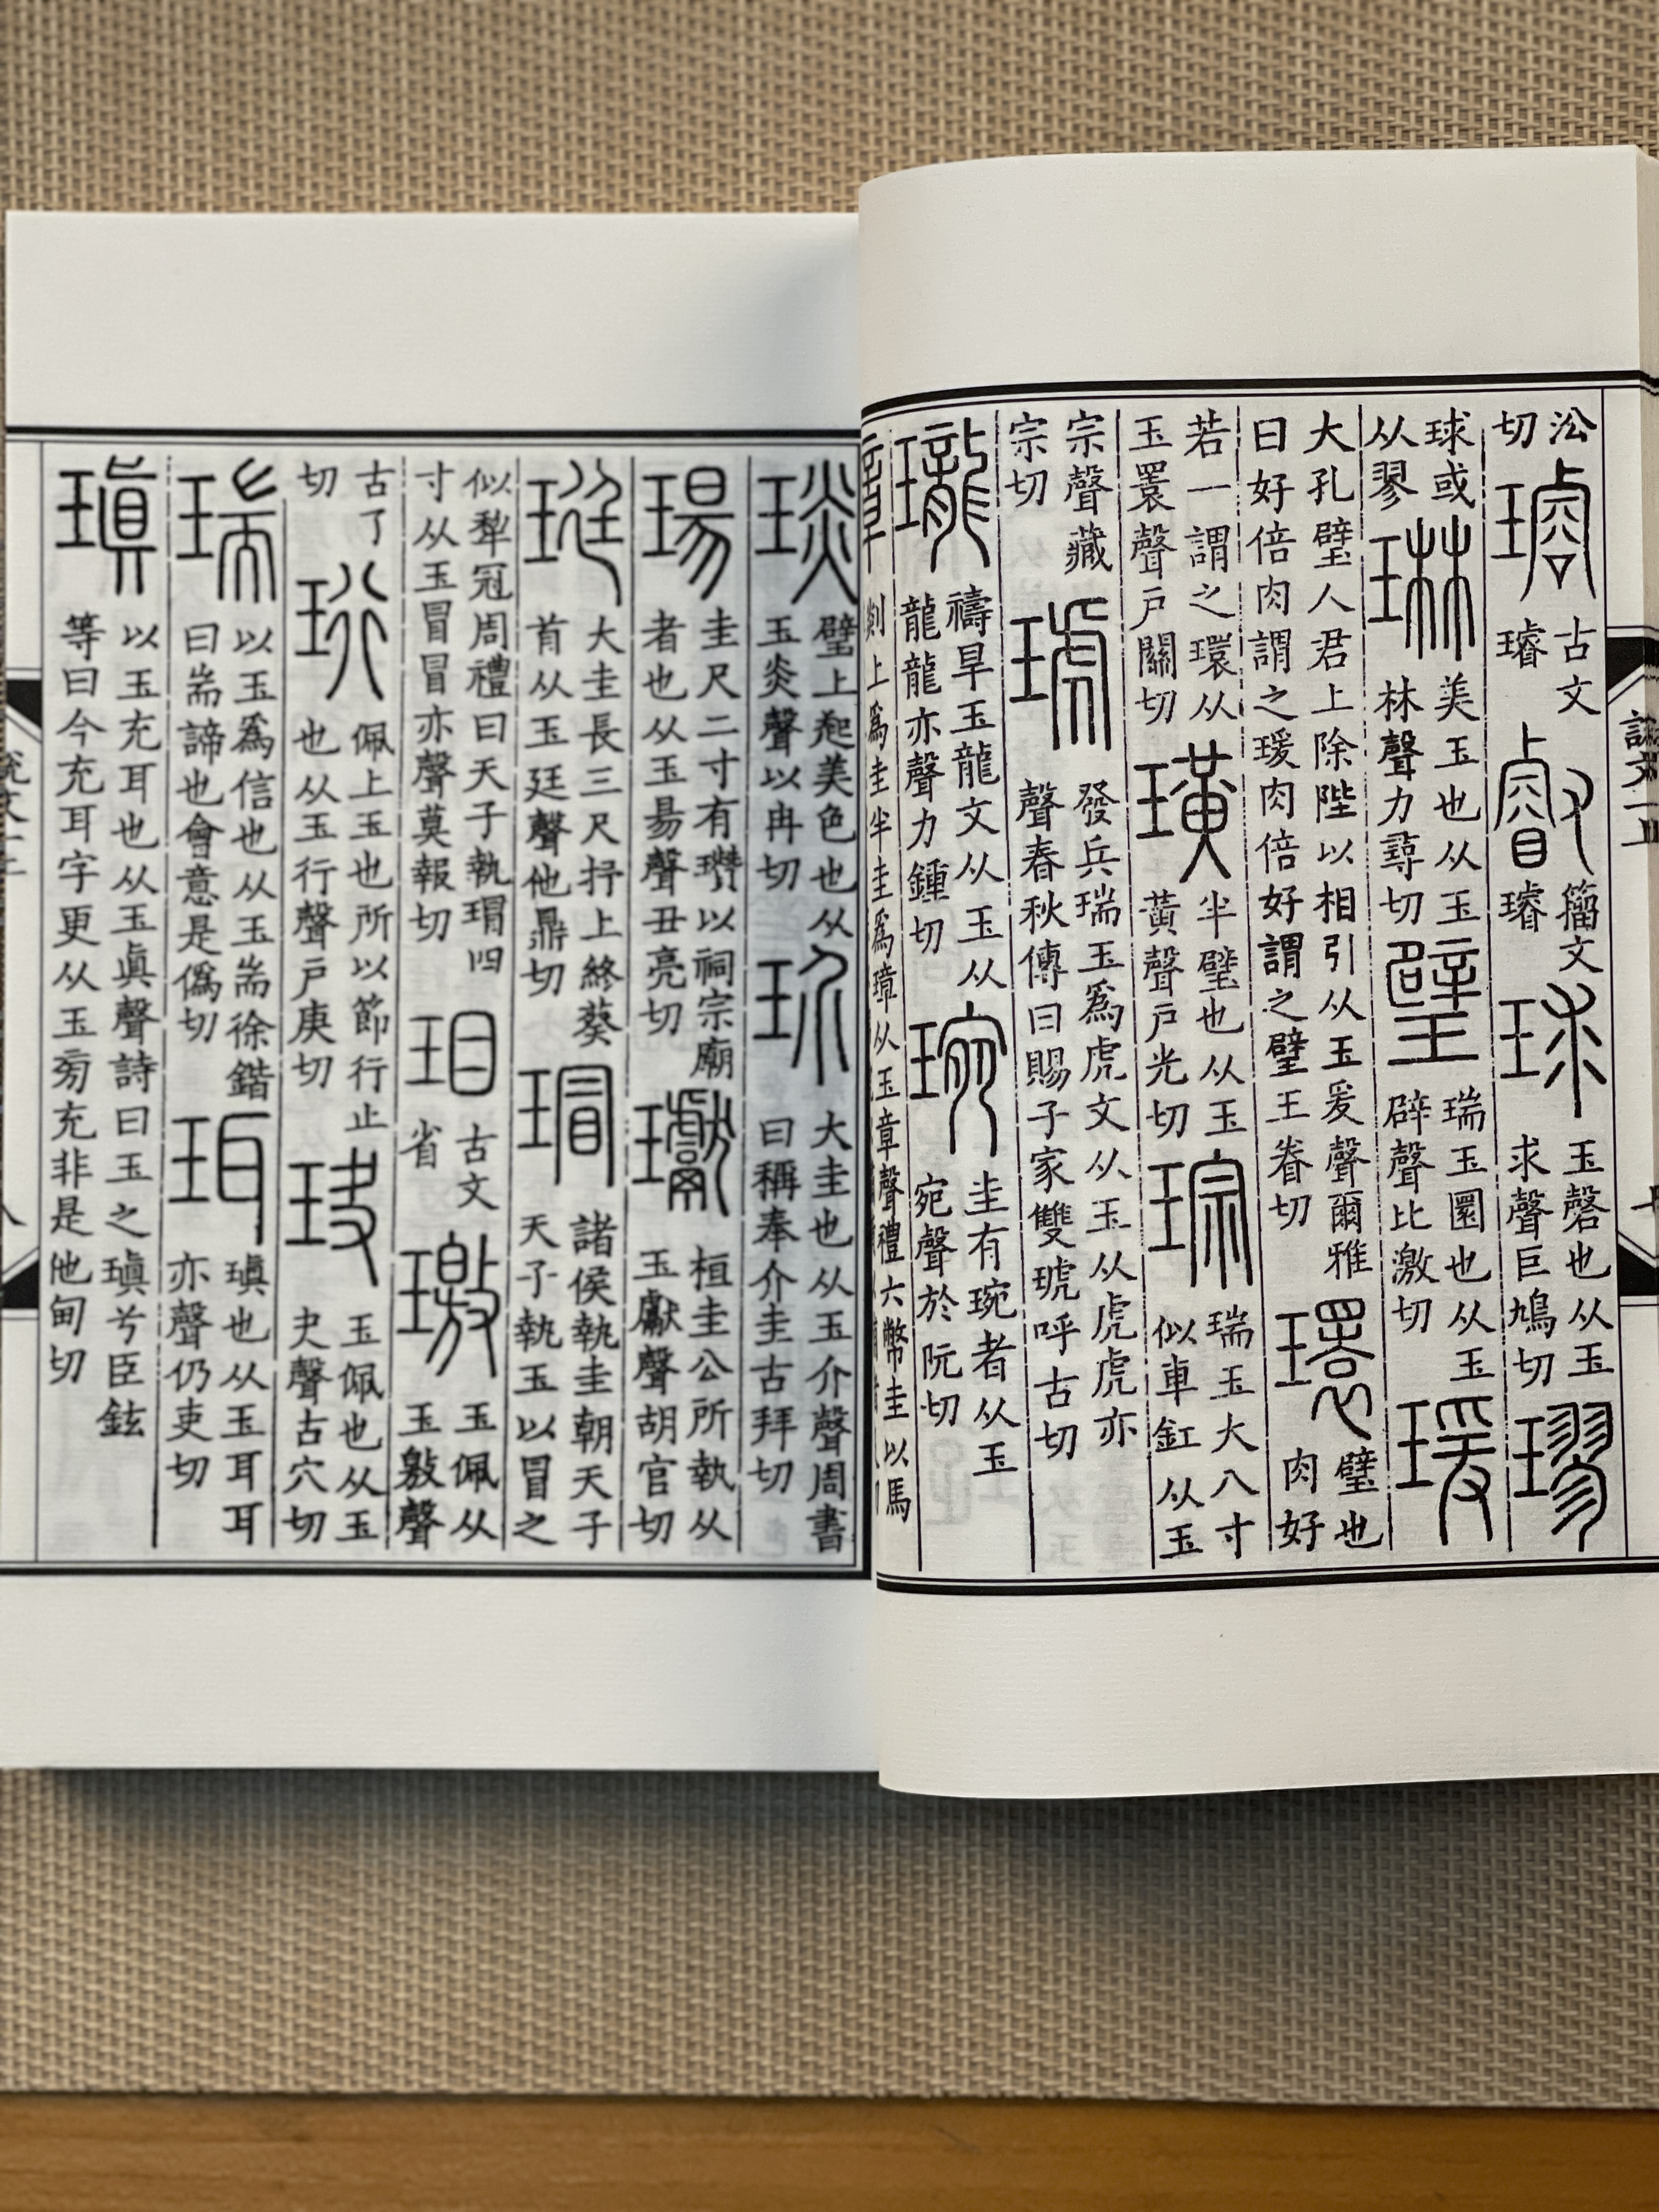 㳂切 璿 古文璿 叡 籒文璿 球 玉磬也从玉求聲巨鳩切 璆
球或从翏 琳 美玉也从玉林聲力尋切 璧 瑞玉圜也从玉辟聲比激切 瑗
大孔璧人君上除陛以相引从玉爰聲爾雅曰好倍肉謂之瑗肉倍好謂之璧王眷切 環 璧也肉好
若一謂之環从玉瞏聲戶關切 璜 半璧也从玉黃聲戶光切 琮 瑞玉大八寸似車釭从玉
宗聲藏宗切 琥 發兵瑞玉爲虎文从玉从虎虎亦聲春秋傳曰賜子家雙琥呼古切
瓏 禱旱玉龍文从玉从龍龍亦聲力鍾切 琬 圭有琬者从玉宛聲於阮切
璋 剡上爲圭半圭爲璋从玉章聲禮六幣圭以馬
琰 璧上起美色也从玉炎聲以冉切 玠 大圭也从玉介聲周書曰稱奉介圭古拜切
瑒 圭尺二寸有瓚以祠宗廟者也从玉昜聲丑亮切 瓛 桓圭公所執从玉獻聲胡官切
珽 大圭長三尺抒上終葵首从玉廷聲他鼎切 瑁 諸侯執圭朝天子天子執玉以冒之
似犂冠周禮曰天子執瑁四寸从玉冒冒亦聲莫報切 珇 古文省 璬 玉佩从玉敫聲
古了切 珩 佩上玉也所以節行止也从玉行聲戶庚切 玦 玉佩也从玉夬聲古穴切
瑞 以玉爲信也从玉耑徐鍇曰耑諦也會意是僞切 珥 瑱也从玉耳耳亦聲仍吏切
瑱 以玉充耳也从玉眞聲詩曰玉之瑱兮臣鉉等曰今充耳字更从玉㫄充非是他甸切